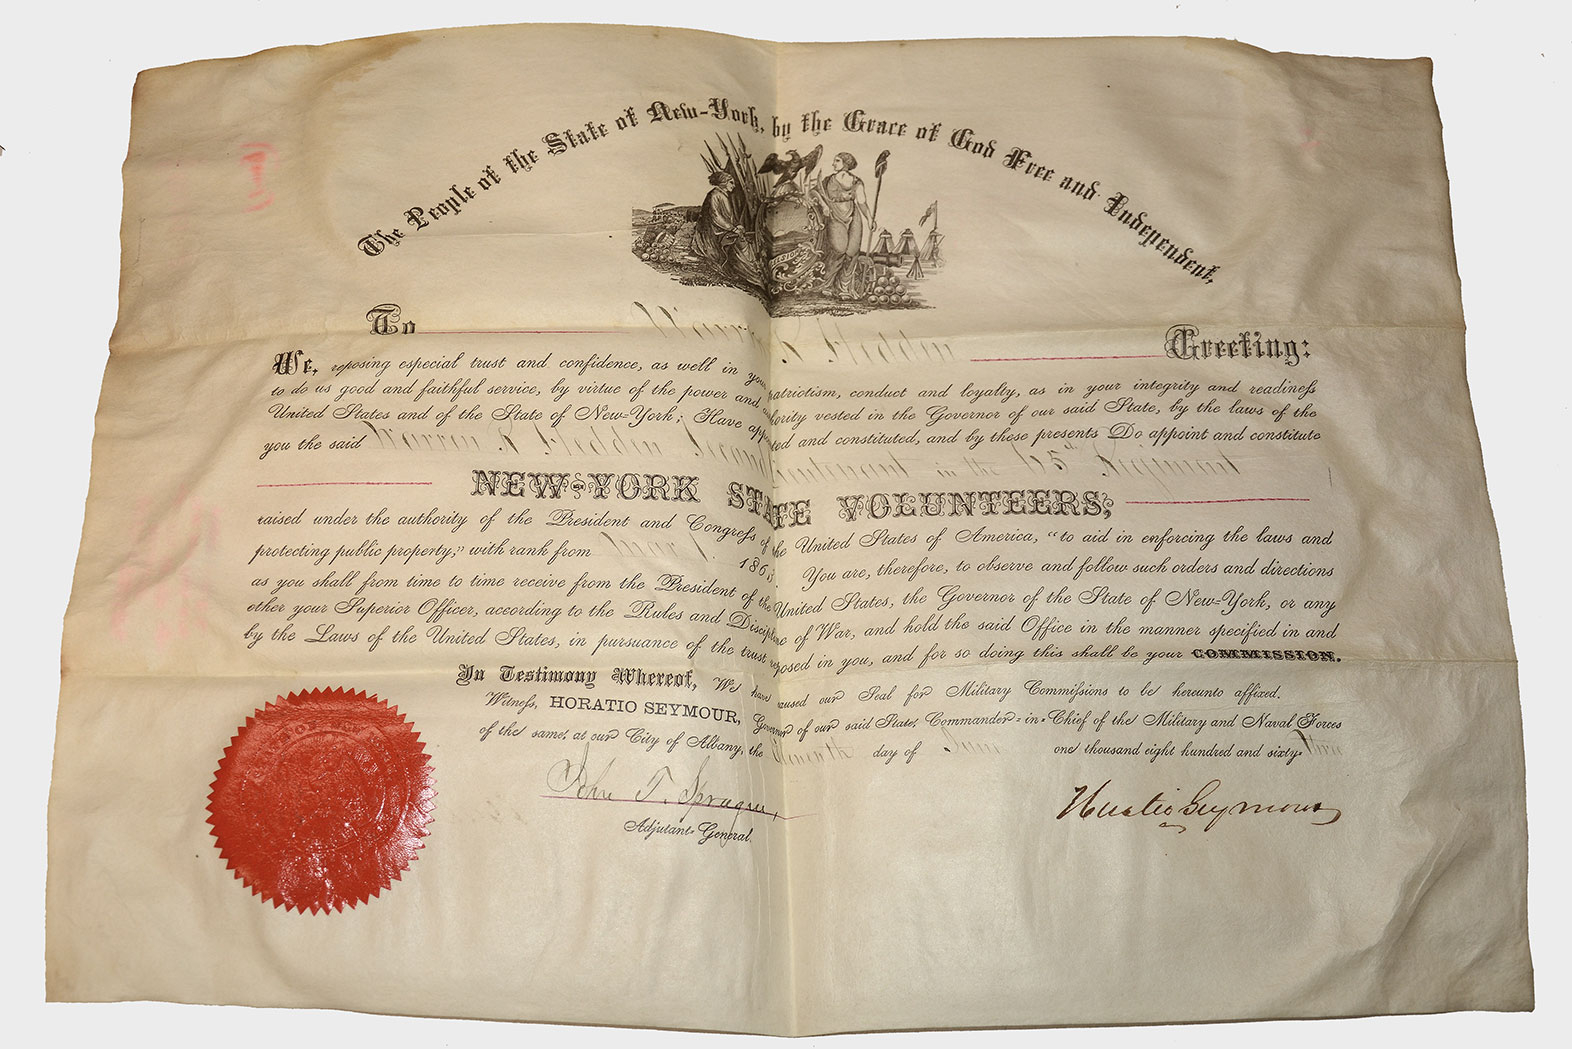 The People of the State of New-York, by the Grace of God Free and Independent,
To Warren R. Hedden Greeting:
We, reposing especial trust and confidence, as well in your patriotism, conduct and loyalty, as in your integrity and readiness
to do us good and faithful service, by virtue of the power and authority vested in the Governor of our said State, by the laws of the
United States and of the State of New=York; Have appointed and constituted, and by these presents Do appoint and constitute
you the said Warren R. Hedden Second Lieutenant in the Regiment
NEW-YORK STATE VOLUNTEERS,
raised under the authority of the President and Congress of the United States of America, "to aid in enforcing the laws and
protecting public property," with rank from 1863 You are, therefore, to observe and follow such orders and directions
as you shall from time to time receive from the President of the United States, the Governor of the State of New=York, or any
other your Superior Officer, according to the Rules and Discipline of War, and hold the said Office in the manner specified in and
by the Laws of the United States, in pursuance of the trust reposed in you, and for so doing this shall be your COMMISSION.
In Testimony Whereof, We have caused our Seal for Military Commissions to be hereunto affixed.
Witness, HORATIO SEYMOUR, Governor of our said State, Commander=in=Chief of the Military and Naval Forces
of the same, at our City of Albany, the day of June one thousand eight hundred and sixty three
John T. Sprague,
Horatio Seymour
Adjutant=General.